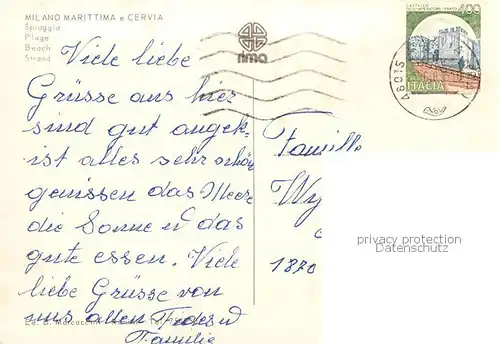 MILANO MARITTIMA e CERVIA
Spiaggia
Plage
Beach
Strand
rima
400
ITALIA
48015
Viele liebe
Grüsse aus hier
sind gut angek-
ist alles sehr schön
genissen das Meer
die Sonne u das
gute essen. Viele
liebe Grüsse von
uns allen
Familie
Familie
Wy
1870
privacy protection
Datenschutz